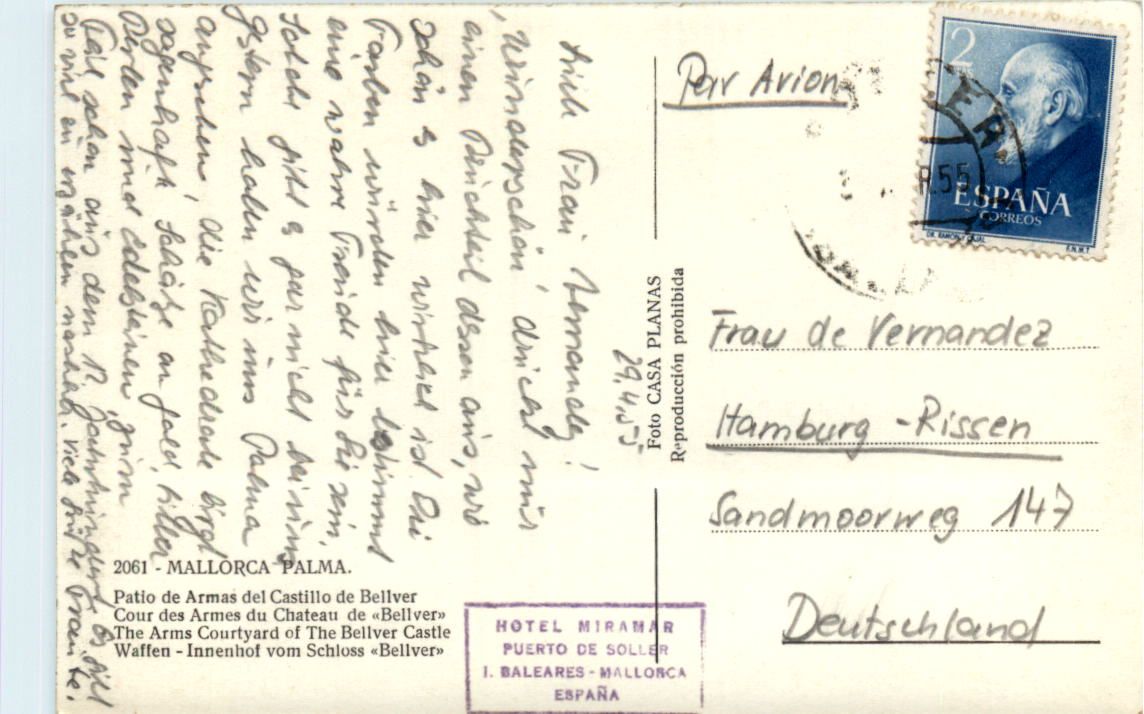 29.4.55
Liebe Frau Vernandez!
"Wunderschön" drückt nur
einen Bruchteil dessen aus, wie
schön es hier wirklich ist. Die
Farben würden hier bestimmt
eine wahre Freude für Sie sein.
Solche gibt es gar nicht bei uns.
Gestern haben wir uns Palma
angesehen, die Kathedrale birgt
sagenhafte Schätze an Gold, Silber
Perlen und Edelsteinen, zum
Teil schon aus dem Jahrhundert. Es gibt
so viel zu erzählen nachher. Viele Grüße
2061 - MALLORCA PALMA.
Patio de Armas del Castillo de Bellver
Cour des Armes du Chateau de «Bellver»
The Arms Courtyard of The Bellver Castle
Waffen - Innenhof vom Schloss «Bellver»
Foto CASA PLANAS
Reproducción prohibida
HOTEL MIRAMAR
PUERTO DE SOLLER
I. BALEARES - MALLORCA
ESPAÑA
Par Avion
2
ESPAÑA
CORREOS
F.N.M.T
R.55
Frau de Vernandez
Hamburg - Rissen
Sandmoorweg 147
Deutschland